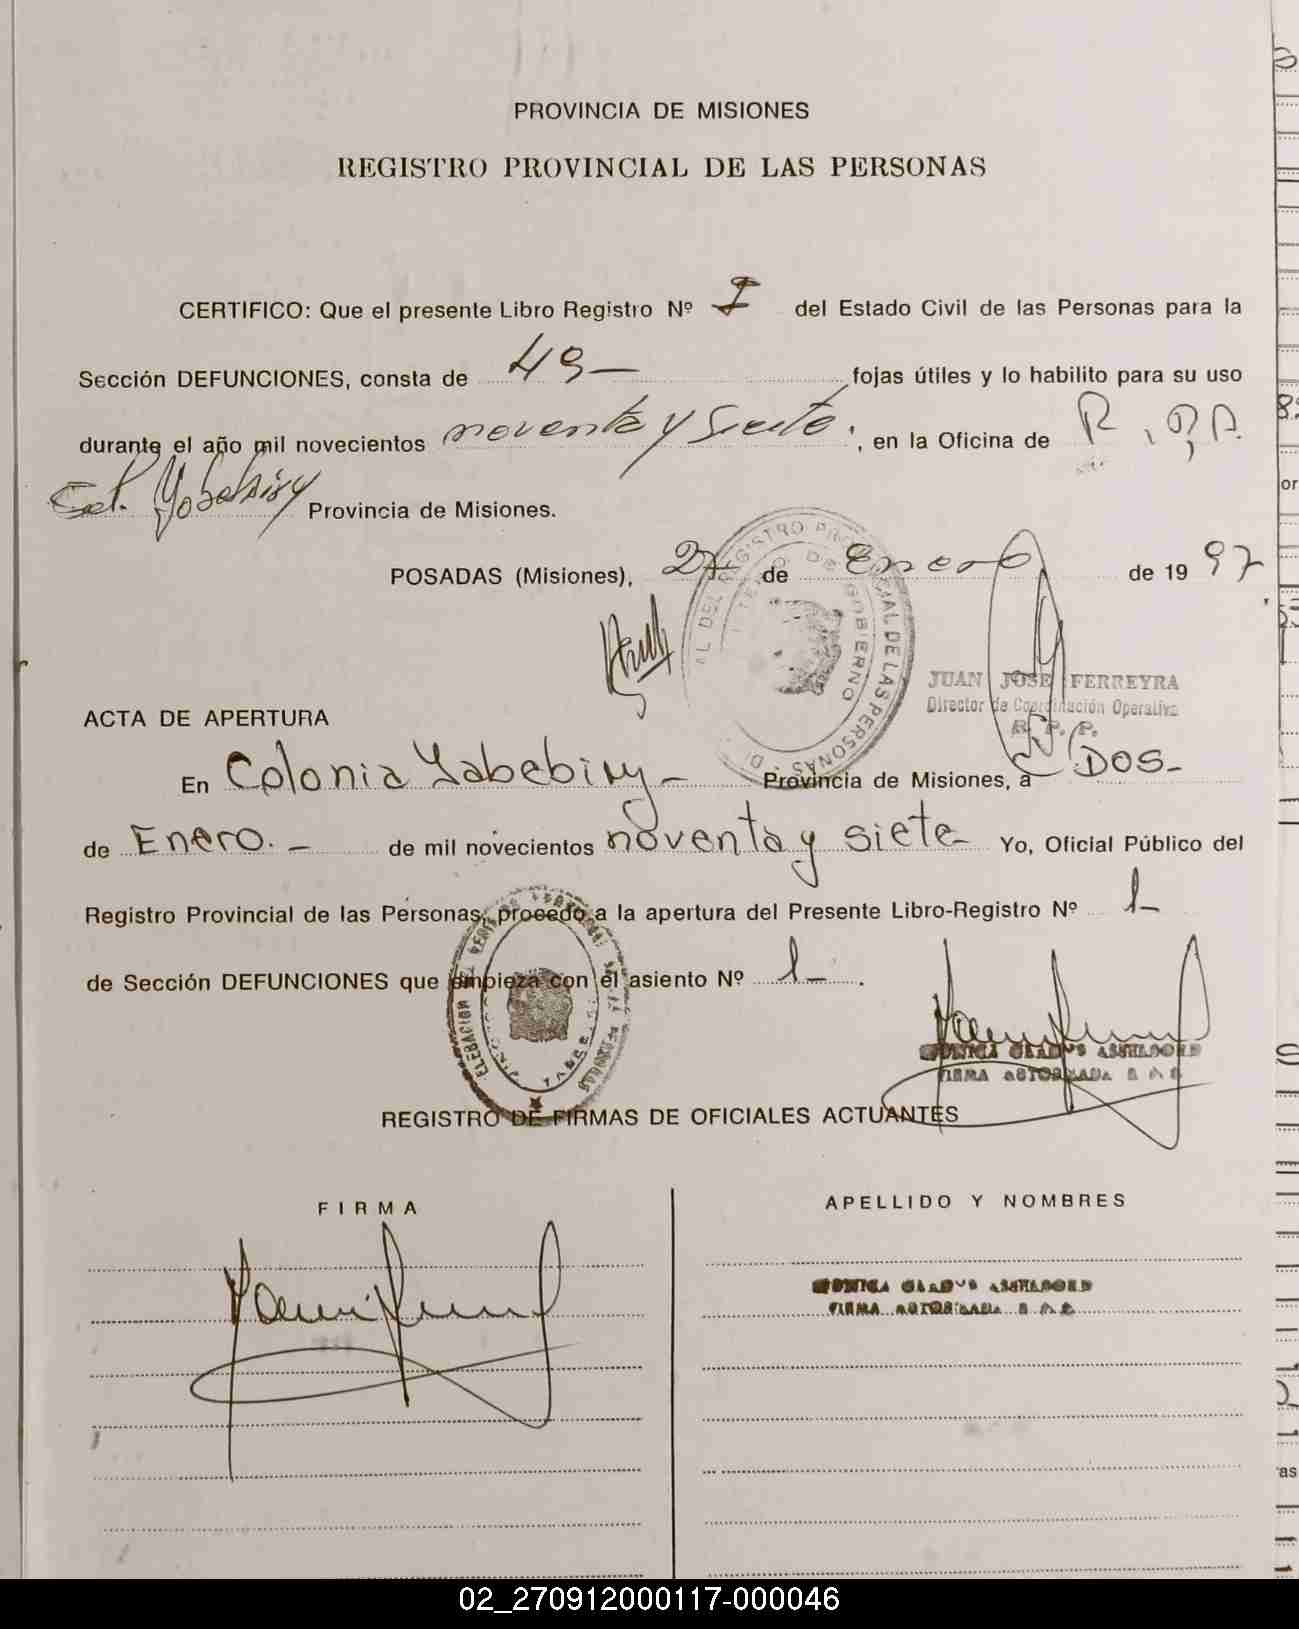 PROVINCIA DE MISIONES
REGISTRO PROVINCIAL DE LAS PERSONAS
CERTIFICO: Que el presente Libro Registro Nº I del Estado Civil de las Personas para la
Sección DEFUNCIONES, consta de 49- fojas útiles y lo habilito para su uso
durante el año mil novecientos noventa y siete, en la Oficina de R.P.P.
Col. Yabebiry Provincia de Misiones.
POSADAS (Misiones), 27 de Enero de 1997
JUAN JOSE FERREYRA
Director de Coordinación Operativa
R. P. P.
ACTA DE APERTURA
En Colonia Yabebiry- Provincia de Misiones, a DOS-
de Enero.- de mil novecientos noventa y siete Yo, Oficial Público del
Registro Provincial de las Personas, procedo a la apertura del Presente Libro-Registro Nº 1-
de Sección DEFUNCIONES que empieza con el asiento Nº 1-.
GLADYS
FIRMA AUTORIZADA
REGISTRO DE FIRMAS DE OFICIALES ACTUANTES
FIRMA
APELLIDO Y NOMBRES
GLADYS
FIRMA AUTORIZADA
02_270912000117-000046